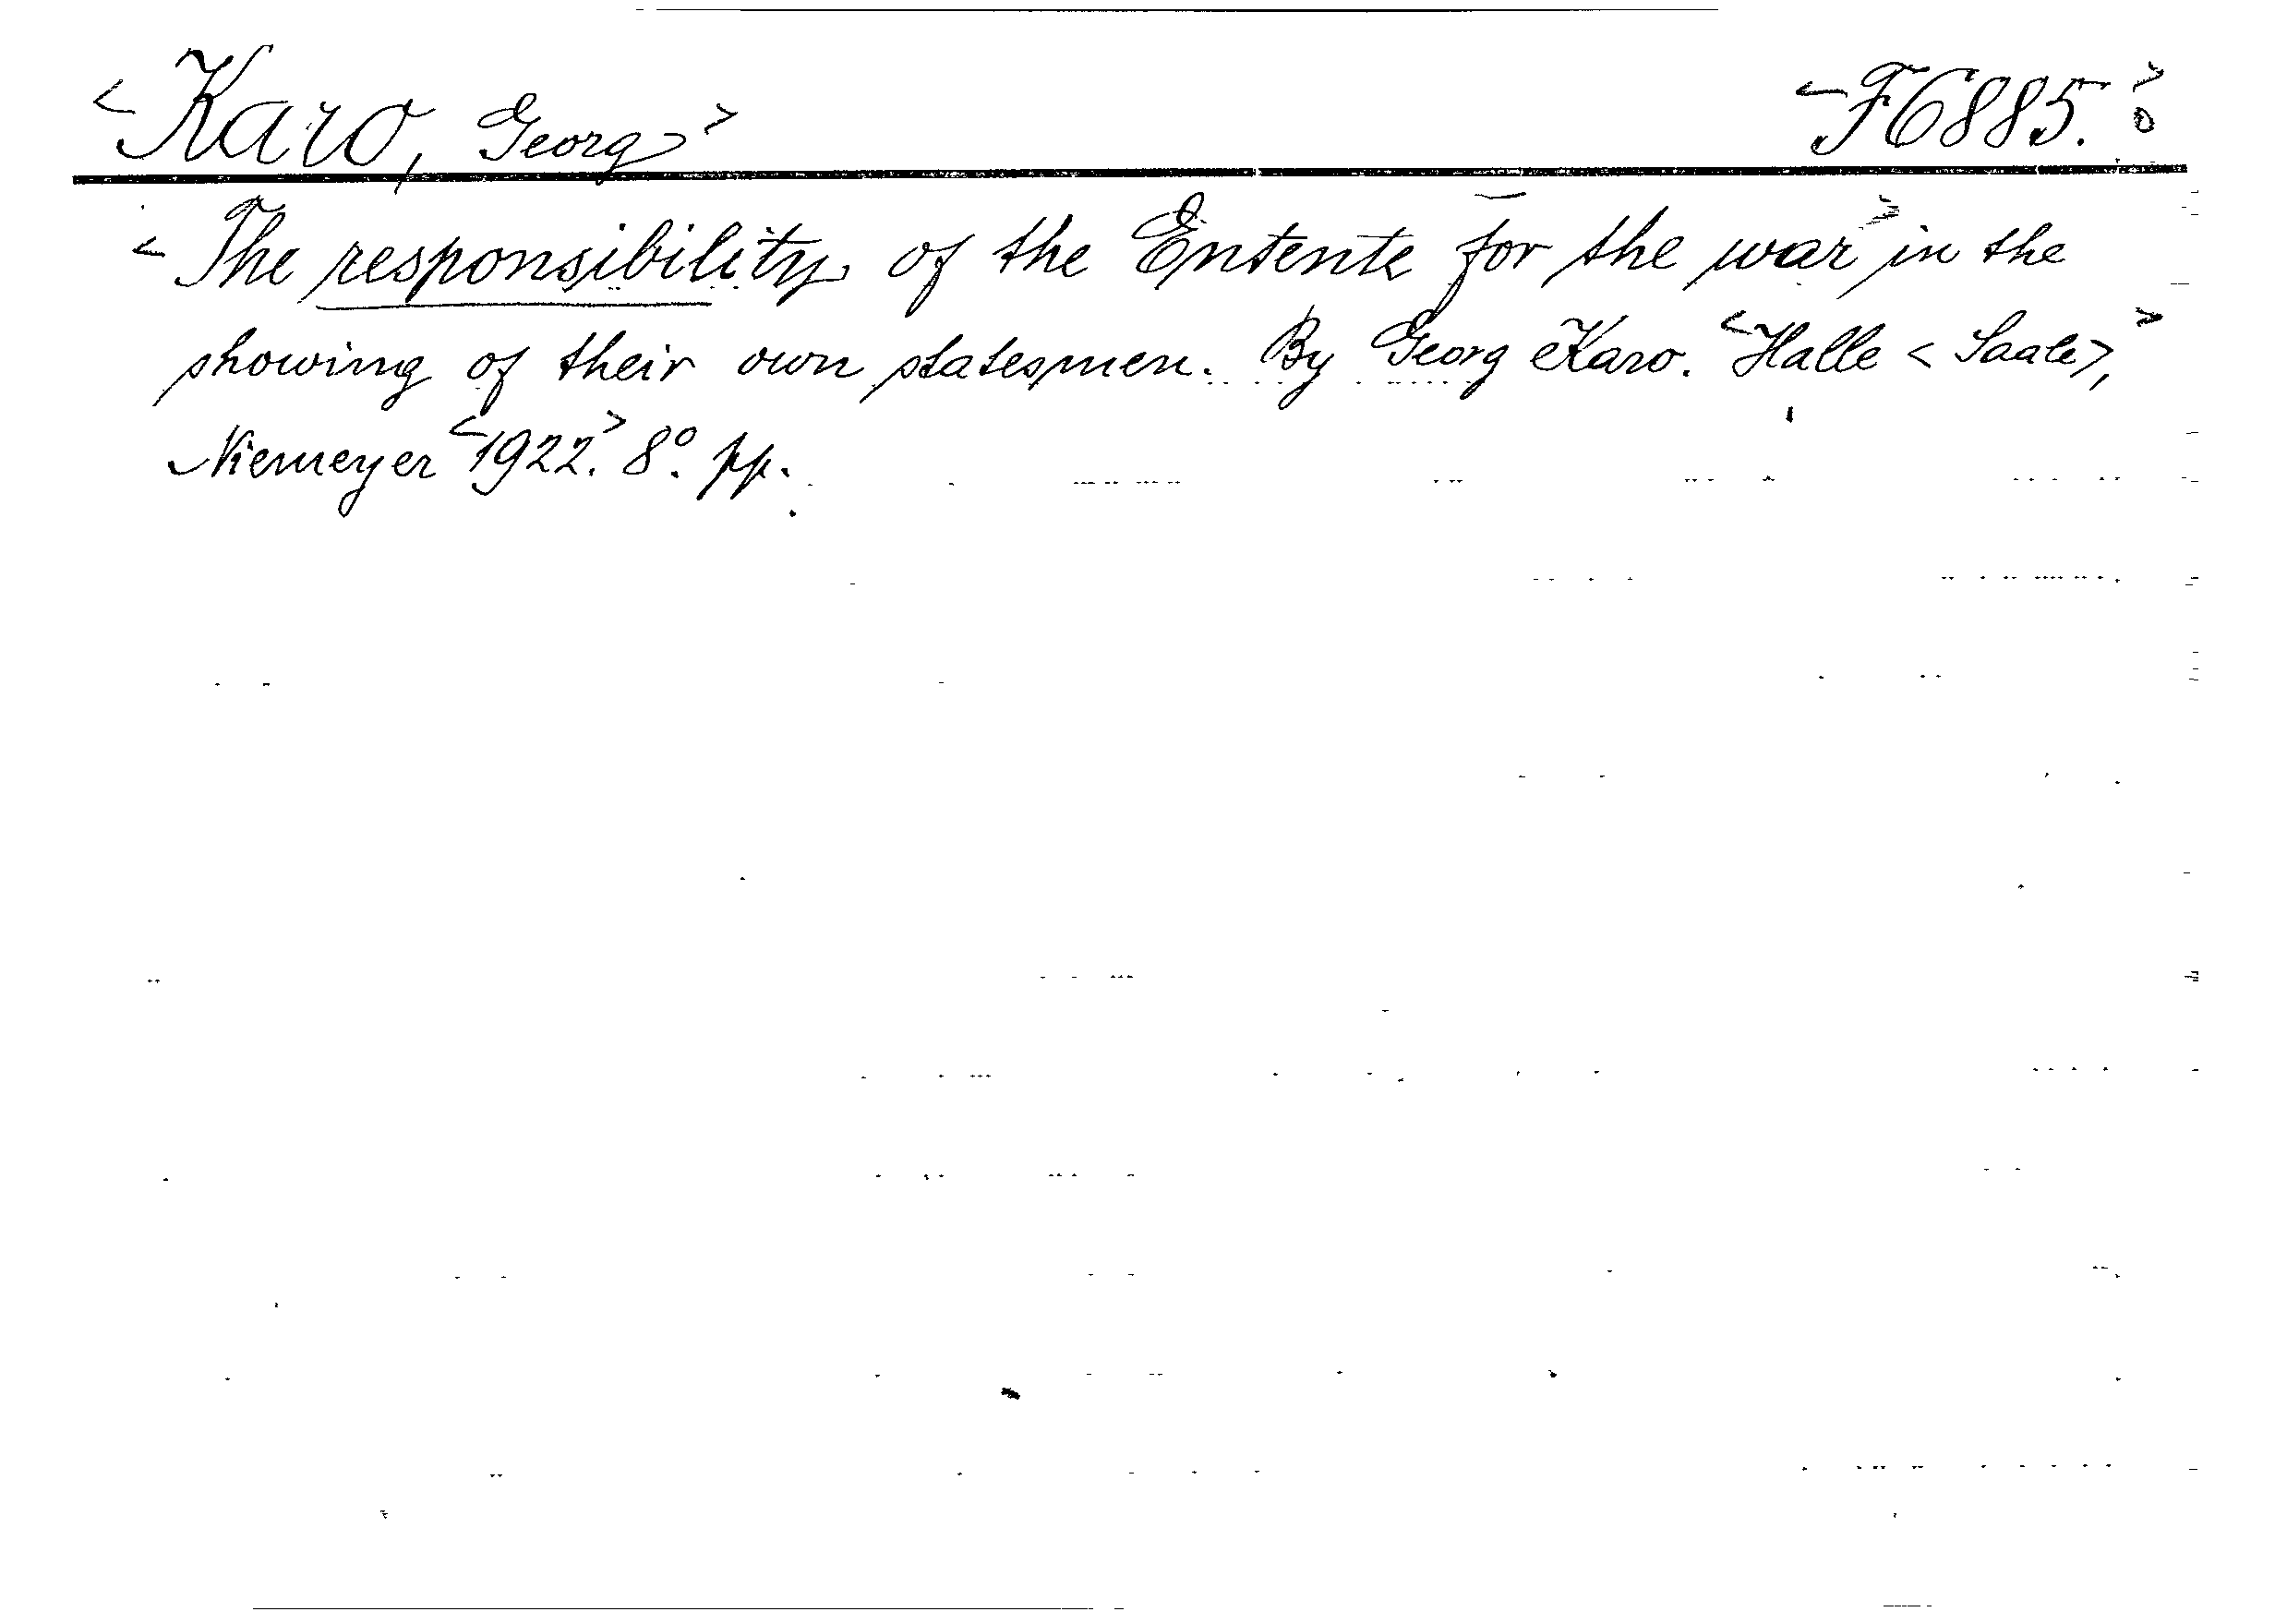 <Karo, Georg> <F6885.>
<The responsibility of the Entente for the war> in the
showing of their own statesmen. By Georg Karo. <Halle <Saale>,>
Niemeyer <1922.> 8°. pp.